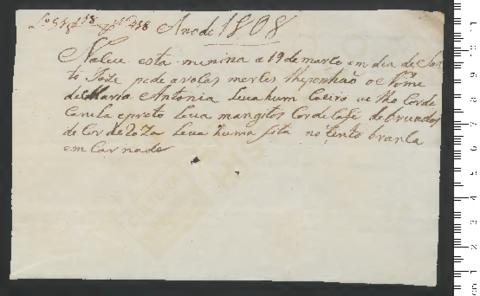 Anode 1808
Naceu esta minina a 19 de marco em dia de San
to Joze pede a voses merses lheponhão o Nome
de Maria Antonia Leva hum Coeiro ve lho Cor de
Canela epreto Leva mangitos Cor de Cafe de bruados
de Cor de Roza Leva huma fita no tento branca
em Carnada